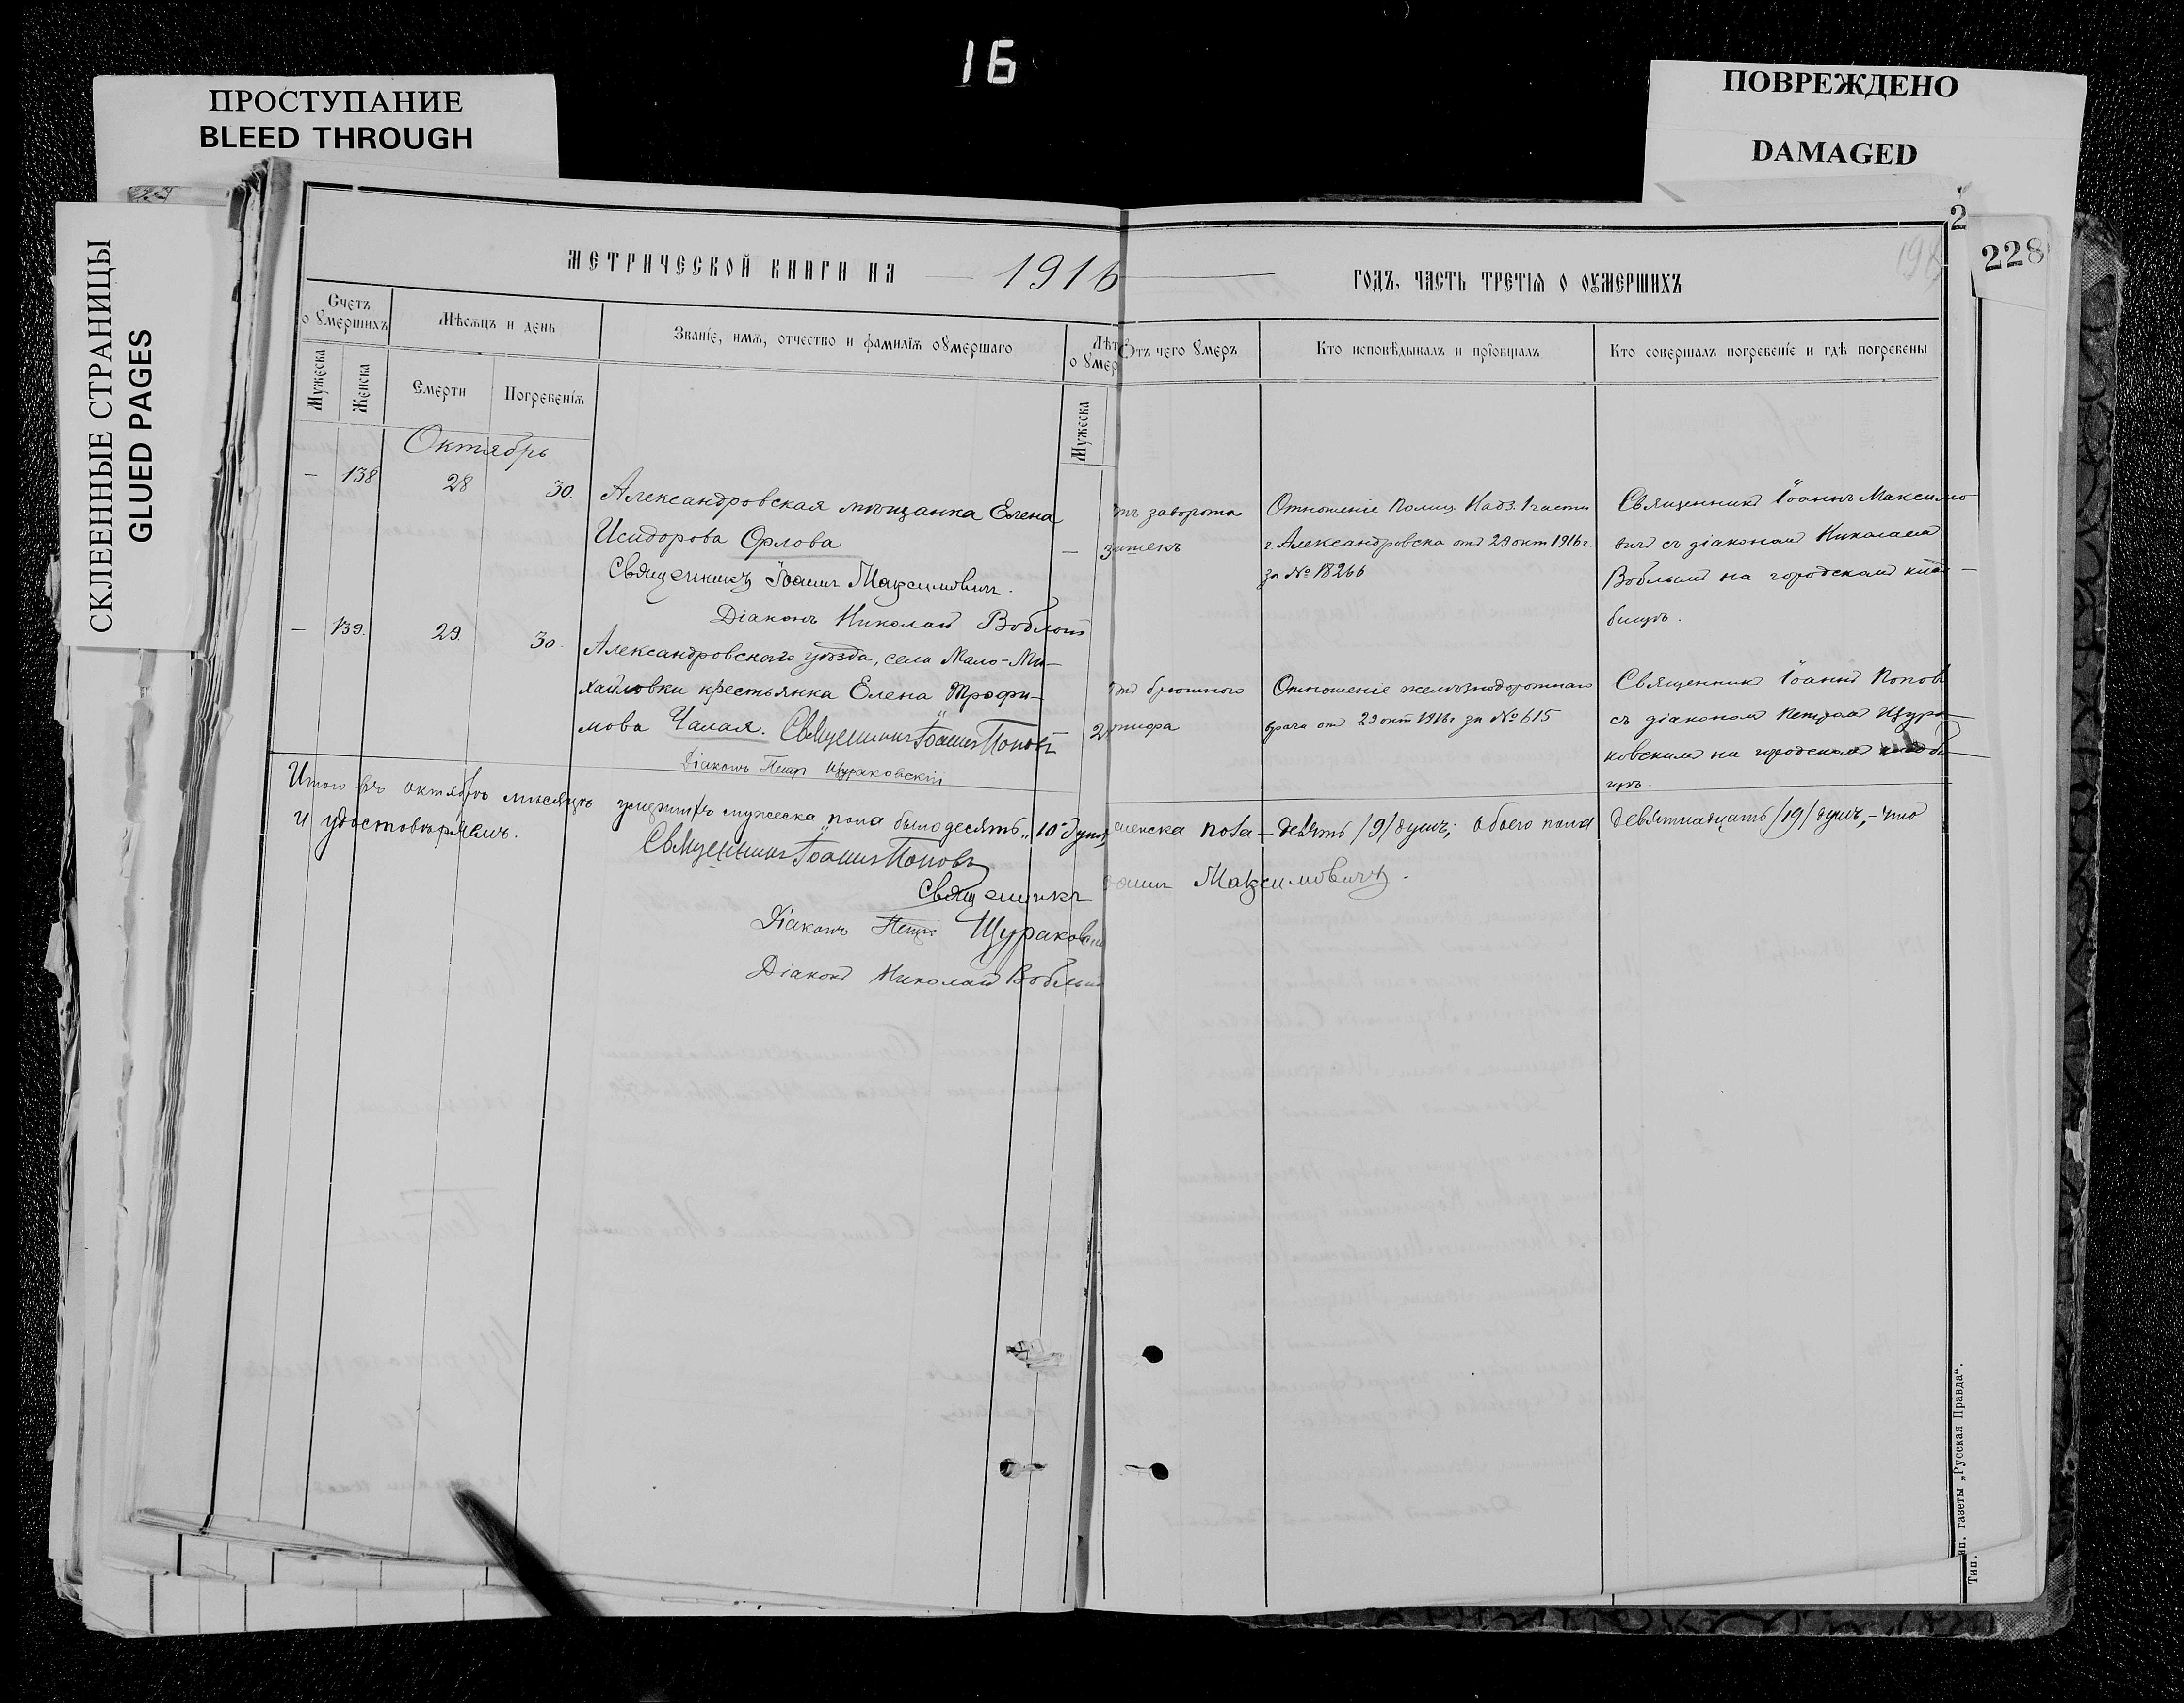 16
ПРОСТУПАНИЕ
BLEED THROUGH
ПОВРЕЖДЕНО
DAMAGED
СКЛЕЕННЫЕ СТРАНИЦЫ
GLUED PAGES
2
228
198
МЕТРИЧЕСКОЙ КНИГИ НА 1916 ГОДЪ, ЧАСТЬ ТРЕТІѦ О ОУМЕРШИХЪ
Счетъ оумершихъ
Мѣсѧцъ и день
Званіе, имѧ, отчество и фамиліѧ оумершаго
Лѣт оумер
Отъ чего умеръ
Кто исповѣдывалъ и пріобщалъ
Кто совершалъ погребеніе и гдѣ погребены
Мужеска
Женска
Смерти
Погребеніѧ
Мужеска
Октябрь
— 138 28 30.
Александровская мѣщанка Елена
Исидорова Орлова —
Священникъ Іоаннъ Максимовичъ.
Діаконъ Николай Воблый
тъ заворота
Отношеніе Полиц. Надз. 1 части
г. Александровска отъ 29 окт 1916 г.
за № 18266
Священникъ Іоаннъ Максимо
вичъ съ діакономъ Николаемъ
Воблымъ на городскомъ клад-
бищѣ.
— 139. 29. 30.
Александровскаго уѣзда, села Мало-Ми-
хайловки крестьянка Елена Трофи-
мова Чалая. Священникъ Іоаннъ Поповъ
Діаконъ Петръ Щураковскій
тъ брюшного
тифа
Отношеніе желѣзнодорожнаго
врача отъ 29 окт 1916 г за № 615
Священникъ Іоаннъ Поповъ
съ діакономъ Петромъ Щура-
ковскимъ на городскомъ кладби
щѣ.
Итого въ октябрѣ мѣсяцѣ умершихъ мужеска пола было десять „10" душъ, женска пола — девять /9/ душъ; обоего пола девятнадцать /19/ душъ, — что
и удостовѣряемъ.
Священникъ Іоаннъ Поповъ
Священникъ Іоаннъ Максимовичъ.
Діаконъ Петръ Щураковскій
Діаконъ Николай Воблый
Тип. газеты „Русская Правда".